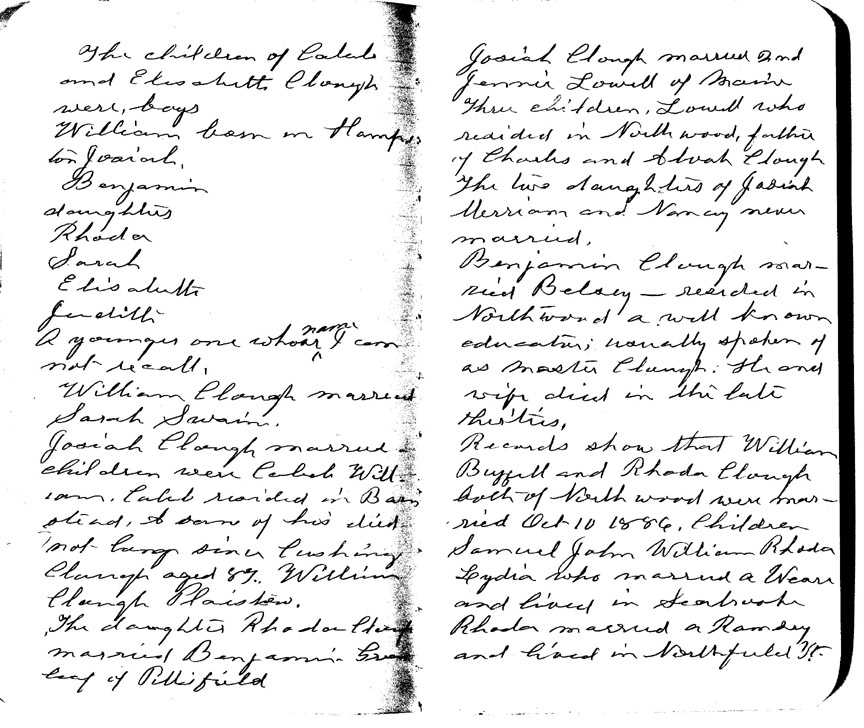 The children of Caleb
and Elisabeth Clough
were, boys
William born in Hamp
ton Josiah,
Benjamin
daughters
Rhoda
Sarah
Elisabeth
Judith
A younger one whose name I can
not recall,
William Clough married
Sarah Swain.
Josiah Clough married
children were Caleb Will-
iam. Caleb resided in Barn
stead, A son of his died
not long since Cushing
Clough aged 87. William
Clough Plaistow.
The daughter Rhoda Clough
married Benjamin Green
leaf of Pittsfield
Josiah Clough married 2nd
Jennie Lowell of Maine
Three children, Lowell who
resided in Northwood, father
of Charles and Alvah Clough
The two daughters of Josiah
Merriam and Nancy never
married.
Benjamin Clough mar-
ried Betsey — resided in
Northwood a well known
educator; usually spoken of
as Master Clough. He and
wife died in the late
thirties,
Records show that William
and Rhoda Clough
both of Northwood were mar-
ried Oct 10 1886. Children
Samuel John William Rhoda
Lydia who married a Weare
and lived in Seabrook
Rhoda married a Ramsey
and lived in Northfield Vt.